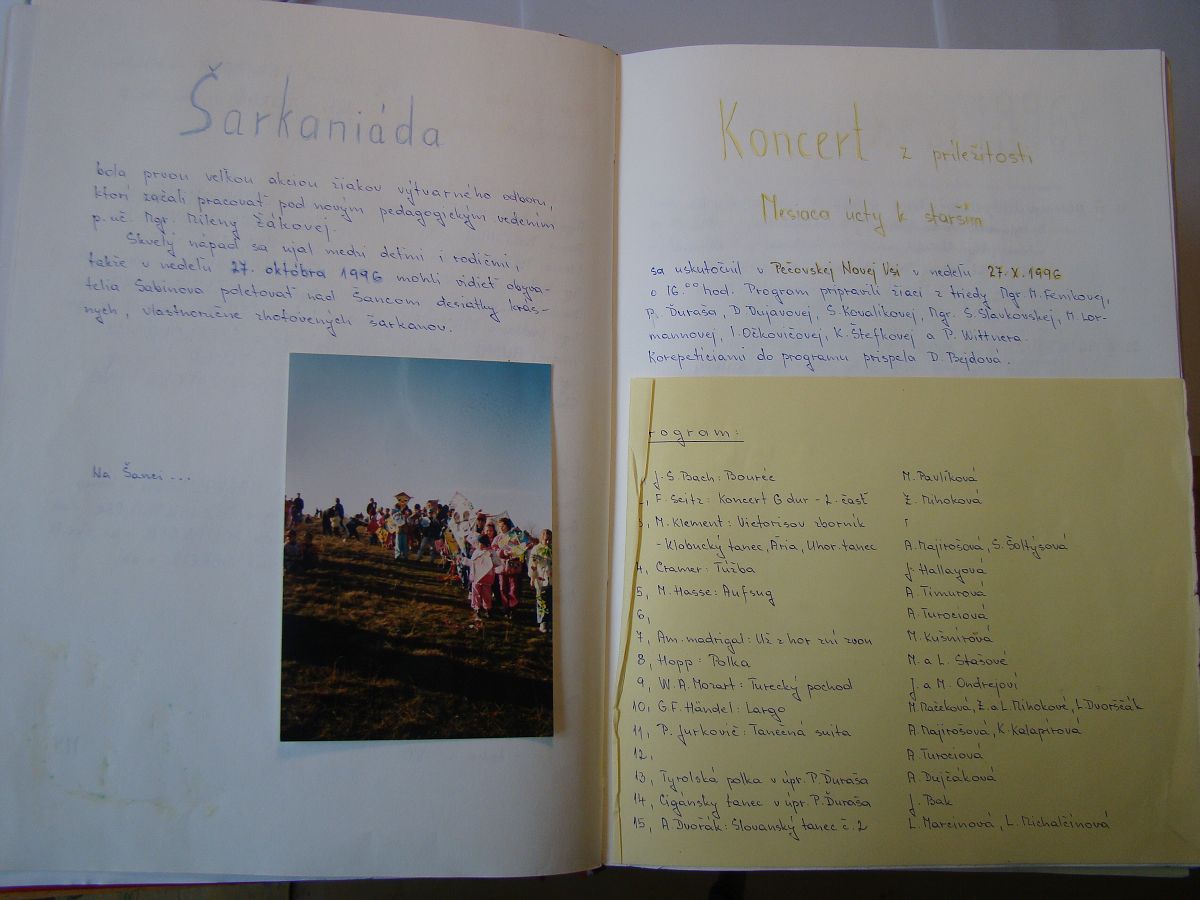 Šarkaniáda
bola prvou veľkou akciou žiakov výtvarného odboru,
ktorí začali pracovať pod novým pedagogickým vedením
p. uč. Mgr. Mileny Žákovej.
Skvelý nápad sa ujal medzi deťmi i rodičmi,
takže v nedeľu 27. októbra 1996 mohli vidieť obyva-
telia Sabinova poletovať nad Šancom desiatky krás-
nych, vlastnoručne zhotovených šarkanov.
Na Šanci ...
Koncert z príležitosti
Mesiaca úcty k starším
sa uskutočnil v Pečovskej Novej Vsi v nedeľu 27.X.1996
o 16.00 hod. Program pripravili žiaci z triedy Mgr. M. Fenikovej,
P. Ďuraša, D. Dujavovej, S. Kovalíkovej, Mgr. S. Slavkovskej, M. Lor-
mannovej, I. Očkovičovej, K. Štefkovej a P. Wittnera.
Korepetíciami do programu prispela D. Bejdová.
rogram:
J. S. Bach: Bourée M. Pavlíková
2, F. Seitz: Koncert G dur - 2. časť Ž. Mihoková
3, M. Klement: Vietorisov zborník
- Klobucký tanec, Ária, Uhor. tanec A. Majirošová, S. Šoltýsová
4, Cramer: Túžba J. Hallayová
5, M. Hasse: Aufsug A. Timurová
6, A. Turociová
7, Am. madrigal: Už z hor zní zvon M. Kušnírová
8, Hopp: Polka M. a L. Stašové
9, W. A. Mozart: Turecký pochod J. a M. Ondrejoví
10, G. F. Händel: Largo M. Mačeková, Ž. a L. Mihokové, L. Dvorščák
11, P. Jurkovič: Tanečná suita A. Majirošová, K. Kalapirová
12, A. Turociová
13, Tyrolská polka v úpr. P. Ďuraša A. Dujčáková
14, Cigánsky tanec v úpr. P. Ďuraša J. Bak
15, A. Dvořák: Slovanský tanec č. 2 L. Marcinová, L. Michalčinová